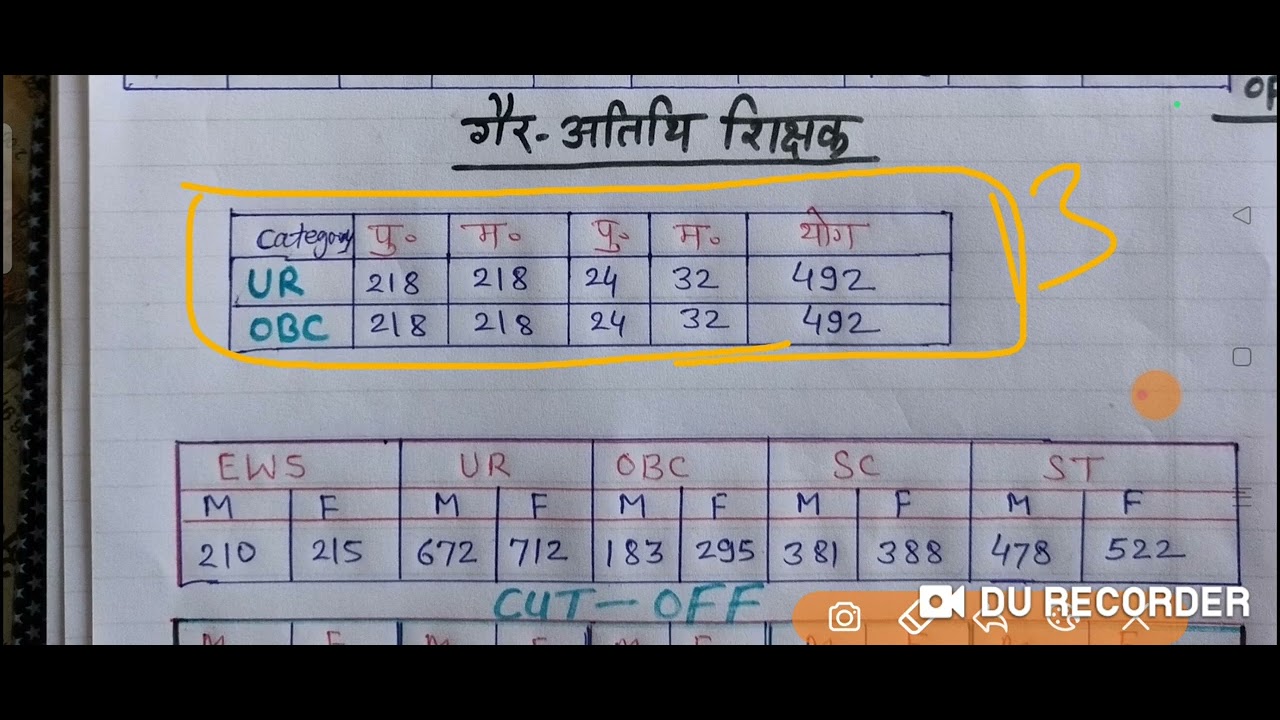 गैर-अतिथि शिक्षक
3
Category पु॰ म॰ पु॰ म॰ योग
UR 218 218 24 32 492
OBC 218 218 24 32 492
EWS UR OBC SC ST
M F M F M F M F M F
210 215 672 712 183 295 381 388 478 522
CUT-OFF
DU RECORDER